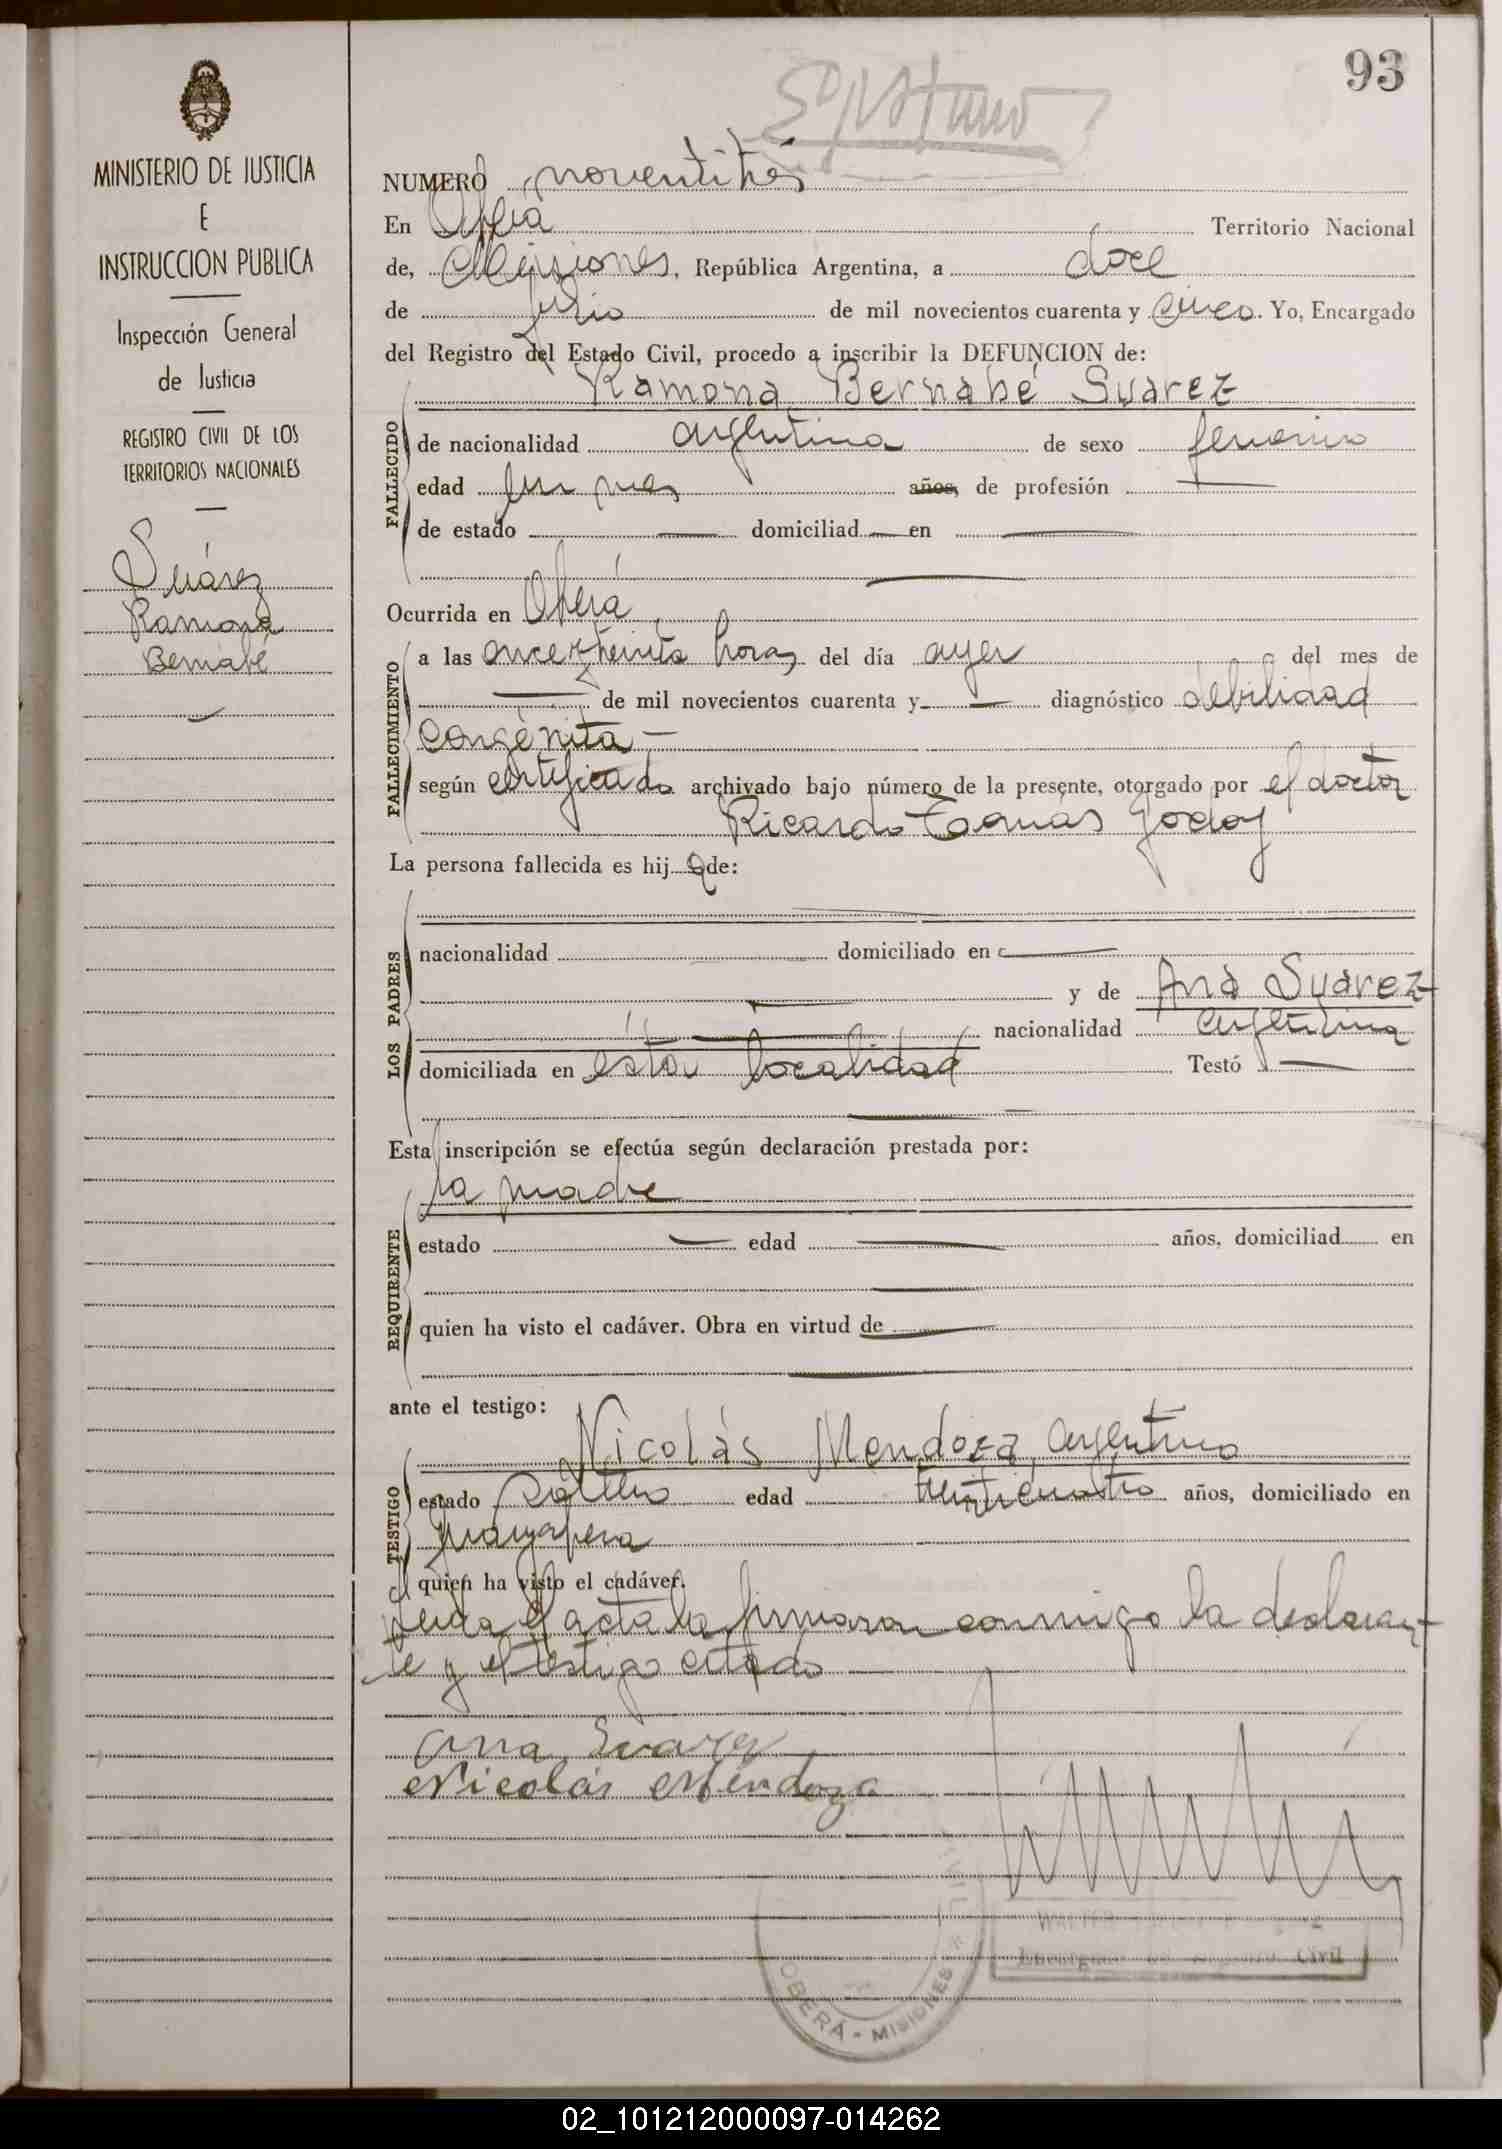 93
MINISTERIO DE JUSTICIA
E
INSTRUCCION PUBLICA
Inspección General
de Justicia
REGISTRO CIVIL DE LOS
TERRITORIOS NACIONALES
Suárez
Ramona
Bernabé
NUMERO noventitrés
En Oberá Territorio Nacional
de, Misiones, República Argentina, a doce
de julio de mil novecientos cuarenta y cinco. Yo, Encargado
del Registro del Estado Civil, procedo a inscribir la DEFUNCION de:
Ramona Bernabé Suarez
FALLECIDO
de nacionalidad argentina de sexo femenino
edad un mes años, de profesión —
de estado — domiciliad — en —
Ocurrida en Oberá
FALLECIMIENTO
a las once y treinta horas del día ayer del mes de
— de mil novecientos cuarenta y — diagnóstico debilidad
congénita —
según certificado archivado bajo número de la presente, otorgado por el doctor
Ricardo Tomás Godoy
La persona fallecida es hij a de:
LOS PADRES
nacionalidad domiciliado en —
— y de Ana Suarez
— nacionalidad argentina
domiciliada en esta localidad Testó —
Esta inscripción se efectúa según declaración prestada por:
la madre
REQUIRENTE
estado — edad — años, domiciliad en
quien ha visto el cadáver. Obra en virtud de —
ante el testigo:
Nicolás Mendoza, argentino
TESTIGO
estado soltero edad años, domiciliado en
quien ha visto el cadáver.
Leida el acta la firmaron conmigo la declaran-
te y el testigo citado —
Ana Suarez
Nicolás Mendoza
Encargado Registro Civil
OBERÁ - MISIONES
02_101212000097-014262